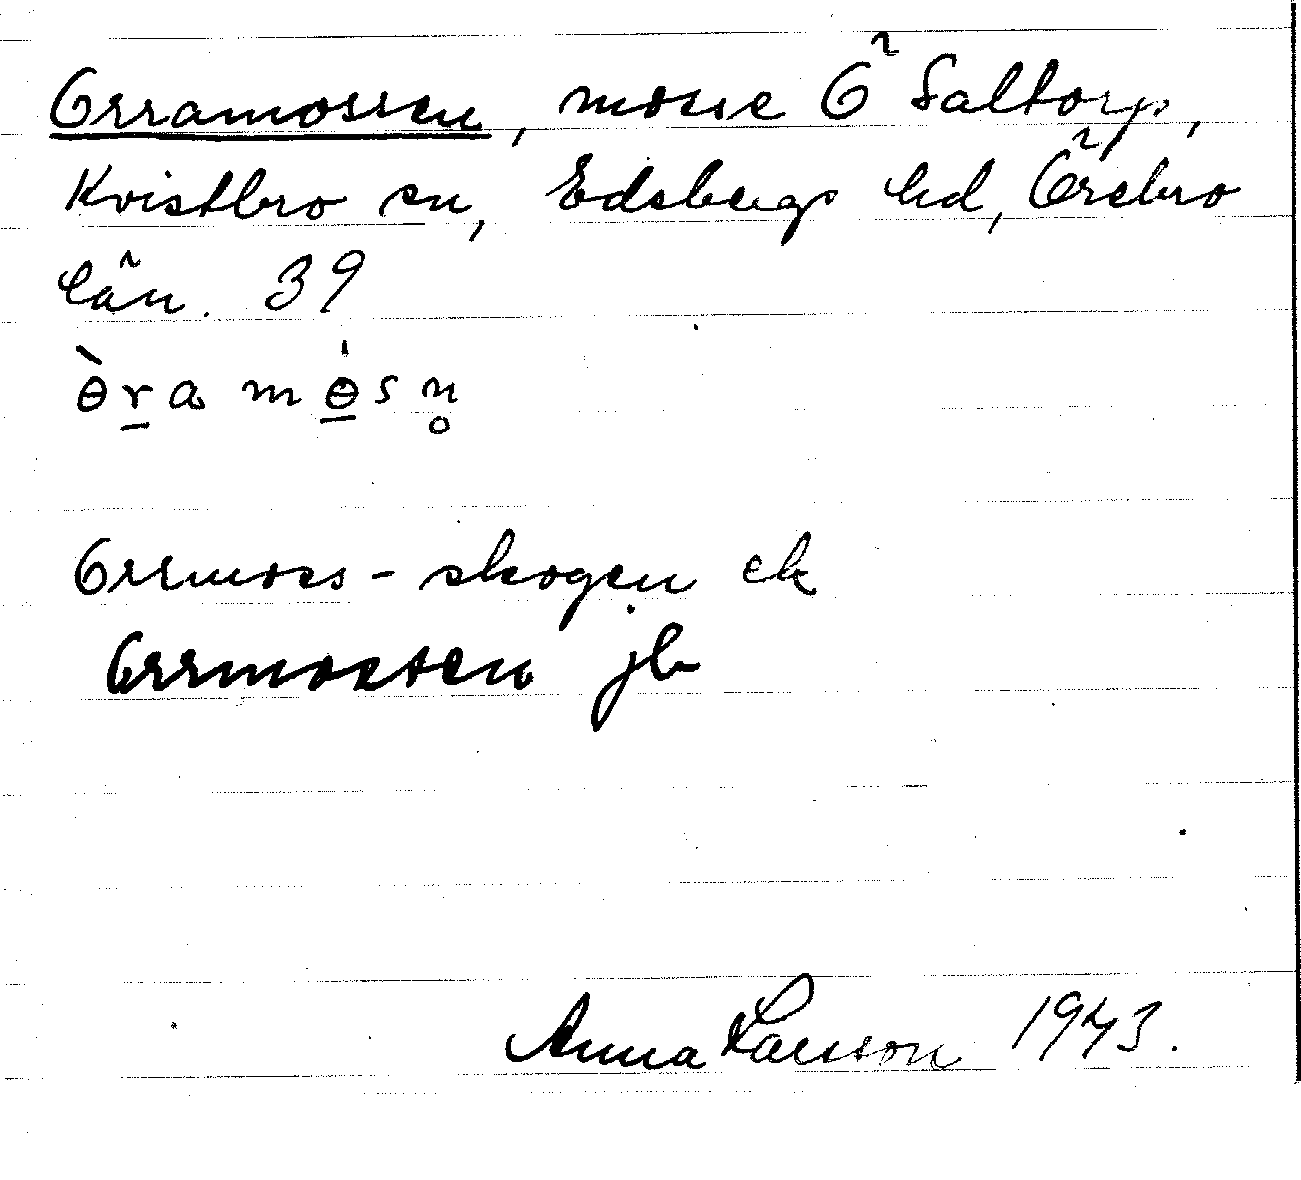 Orramossen, mosse Ö Saltorp,
Kvistbro sn, Edsbergs hd, Örebro
län. 39
ɵ̀r̠a mɵ̠̇sn̥
Orrmoss-skogen ek
Orrmossen jb
Anna Larsson 1943.